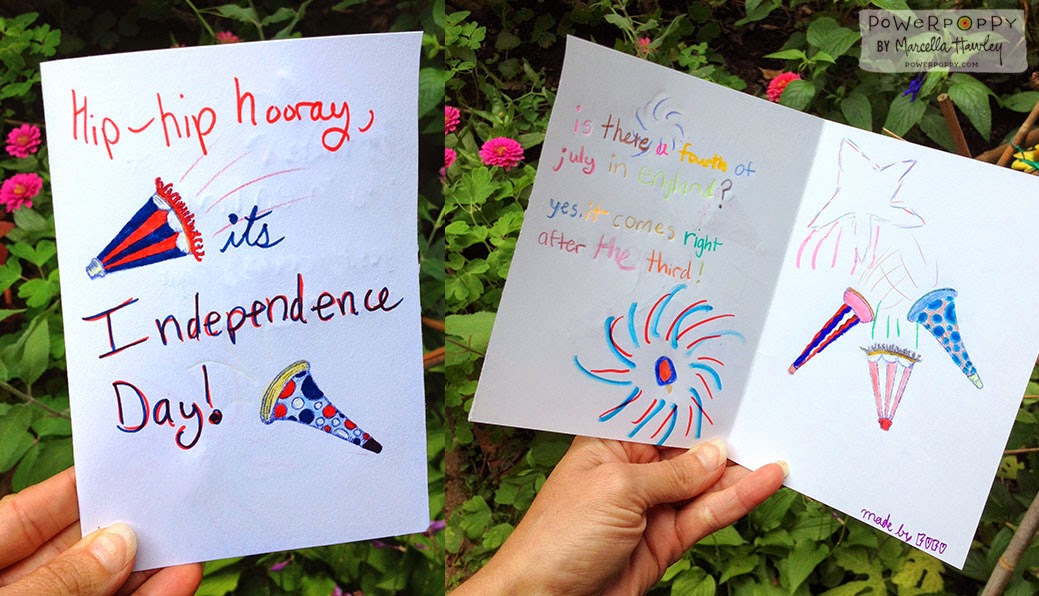 Hip-hip hooray,
its
Independence
Day!
is there a fourth of
july in england?
yes, it comes right
after the third!
made by
POWERPOPPY
BY Marcella Hawley
POWERPOPPY.COM